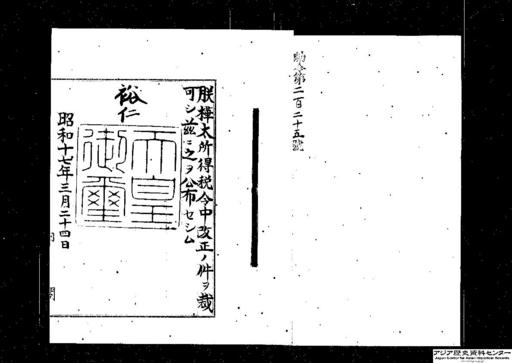 勅令第二百二十五號
朕樺太所得税令中改正ノ件ヲ裁
可シ茲ニ之ヲ公布セシム
裕仁
天皇
御璽
昭和十七年三月二十四日
内閣
アジア歴史資料センター
Japan Center for Asian Historical Records